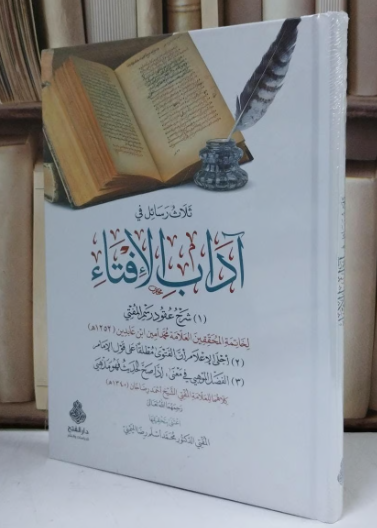 ثلاث رسائل في
آداب الإفتاء
(١) شرح عقود رسم المفتي
لخاتمة المحققين العلامة محمد أمين ابن عابدين (ت١٢٥٢هـ)
(٢) أجلى الإعلام أن الفتوى مطلقا على قول الإمام
(٣) الفضل الموهبي في معنى إذا صح الحديث فهو مذهبي
كلاهما للعلامة المفتي الشيخ أحمد رضا خان (ت١٣٤٠هـ)
رحمهما الله تعالى
اعتنى بتحقيقها
المفتي الدكتور محمد أسلم رضا الميمني
دار الفتح